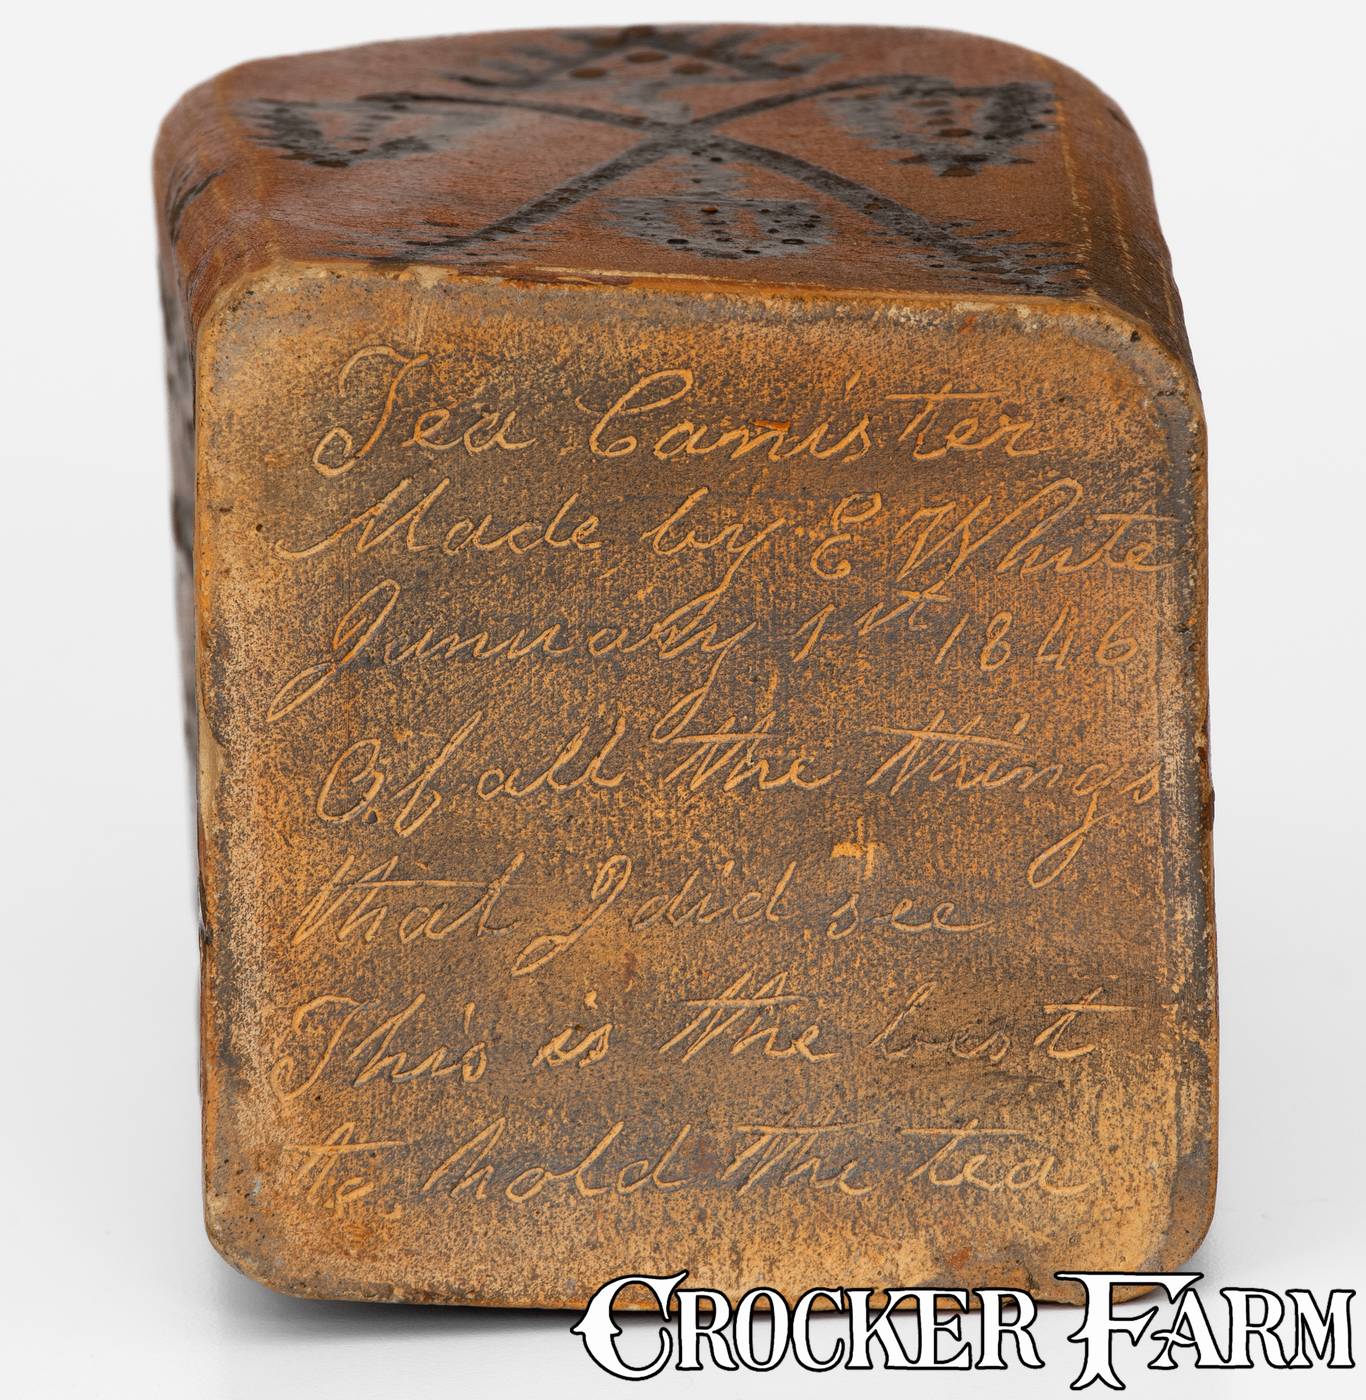 Tea Canister
Made by E White
January 1st 1846
Of all the things
that I did see
This is the best
to hold the tea
CROCKER FARM